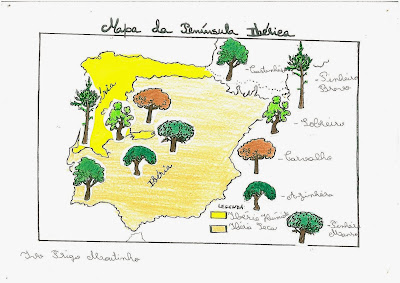 Mapa da Península Ibérica
Castanheiro
-Pinheiro
Bravo
-Sobreiro
-Carvalho
-Azinheira
-Pinheiro
Manso
Ibéria
LEGENDA
Ibéria Húmida
Ibéria Seca
Ivo Frigo Moutinho